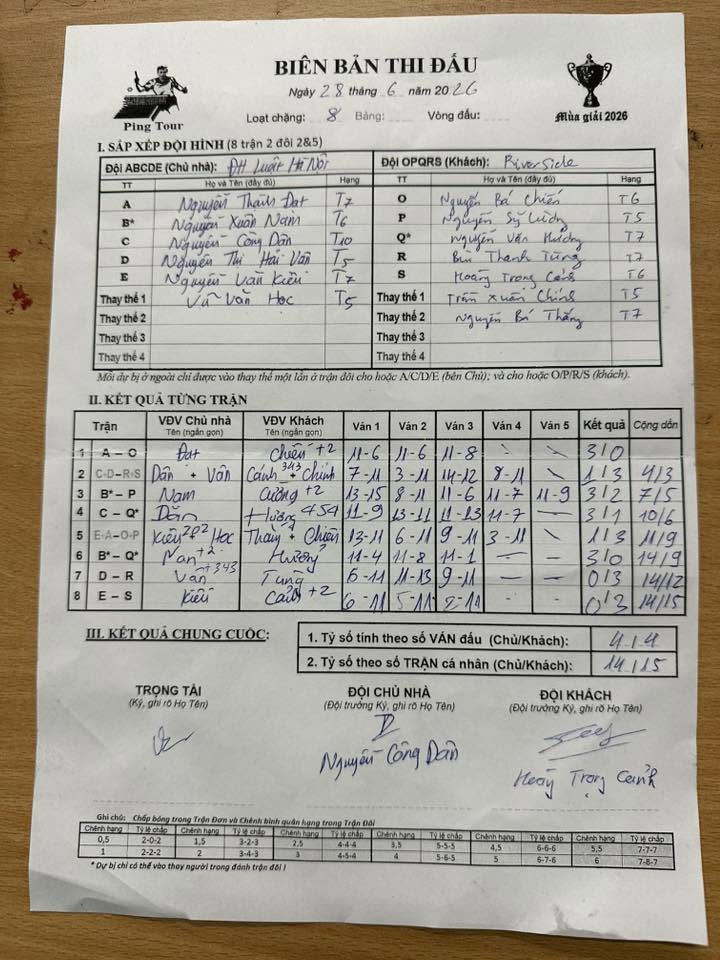 BIÊN BẢN THI ĐẤU
Ngày 28 tháng 6 năm 2026
Ping Tour
Loạt chặng: 8 Bảng: Vòng đấu:
Mùa giải 2026
I. SẮP XẾP ĐỘI HÌNH (8 trận 2 đôi 2&5)
Đội ABCDE (Chủ nhà): ĐH Luật Hà Nội Đội OPQRS (Khách): Riverside
TT Họ và Tên (đầy đủ) Hạng TT Họ và Tên (đầy đủ) Hạng
A Nguyễn Thành Đạt T7 O Nguyễn Bá Chiến T6
B* Nguyễn Xuân Nam T6 P Nguyễn Sỹ Cường T5
C Nguyễn Công Dân T10 Q* Nguyễn Văn Hương T7
D Nguyễn Thị Hải Vân T5 R Bùi Thanh Tùng T7
E Nguyễn Văn Kiều T7 S Hoàng Trọng Cảnh T6
Thay thế 1 Vũ Văn Học T5 Thay thế 1 Trần Xuân Chính T5
Thay thế 2 Thay thế 2 Nguyễn Bá Thắng T7
Thay thế 3 Thay thế 3
Thay thế 4 Thay thế 4
Mỗi dự bị ở ngoài chỉ được vào thay thế một lần ở trận đôi cho hoặc A/C/D/E (bên Chủ); và cho hoặc O/P/R/S (khách).
II. KẾT QUẢ TỪNG TRẬN
Trận VĐV Chủ nhà Tên (ngắn gọn) VĐV Khách Tên (ngắn gọn) Ván 1 Ván 2 Ván 3 Ván 4 Ván 5 Kết quả Cộng dồn
1 A – O Đạt Chiến +2 11-6 11-6 11-8 – – 3/0
2 C-D–R-S Dân + Vân Cảnh 343 + Chính 7-11 3-11 14-12 8-11 – 1/3 4/3
3 B* – P Nam Cường +2 13-15 8-11 11-6 11-7 11-9 3/2 7/5
4 C – Q* Dân Hương 454 11-9 13-11 11-13 11-7 – 3/1 10/6
5 E-A–O-P Kiều 2 2 Học + Chiến 13-11 6-11 9-11 3-11 – 1/3 11/9
6 B* – Q* Nam +2 Hương 11-4 11-8 11-1 – – 3/0 14/9
7 D – R Vân +343 Tùng 6-11 11-13 9-11 – – 0/3 14/12
8 E – S Kiều Cảnh +2 6-11 5-11 – – 0/3 14/15
III. KẾT QUẢ CHUNG CUỘC:
1. Tỷ số tính theo số VÁN đấu (Chủ/Khách): 4/4
2. Tỷ số theo số TRẬN cá nhân (Chủ/Khách): 14/15
TRỌNG TÀI ĐỘI CHỦ NHÀ ĐỘI KHÁCH
(Ký, ghi rõ Họ Tên) (Đội trưởng Ký, ghi rõ Họ Tên) (Đội trưởng Ký, ghi rõ Họ Tên)
Nguyễn Công Dân
Hoàng Trọng Cảnh
Ghi chú: Chấp bóng trong Trận Đơn và Chênh bình quân hạng trong Trận Đôi
Chênh hạng Tỷ lệ chấp Chênh hạng Tỷ lệ chấp Chênh hạng Tỷ lệ chấp Chênh hạng Tỷ lệ chấp Chênh hạng Tỷ lệ chấp Chênh hạng Tỷ lệ chấp
0,5 2-0-2 1,5 3-2-3 2,5 4-4-4 3,5 5-5-5 4,5 6-6-6 5,5 7-7-7
1 2-2-2 2 3-4-3 3 4-5-4 4 5-6-5 5 6-7-6 6 7-8-7
* Dự bị chỉ có thể vào thay người trong đánh trận đôi !